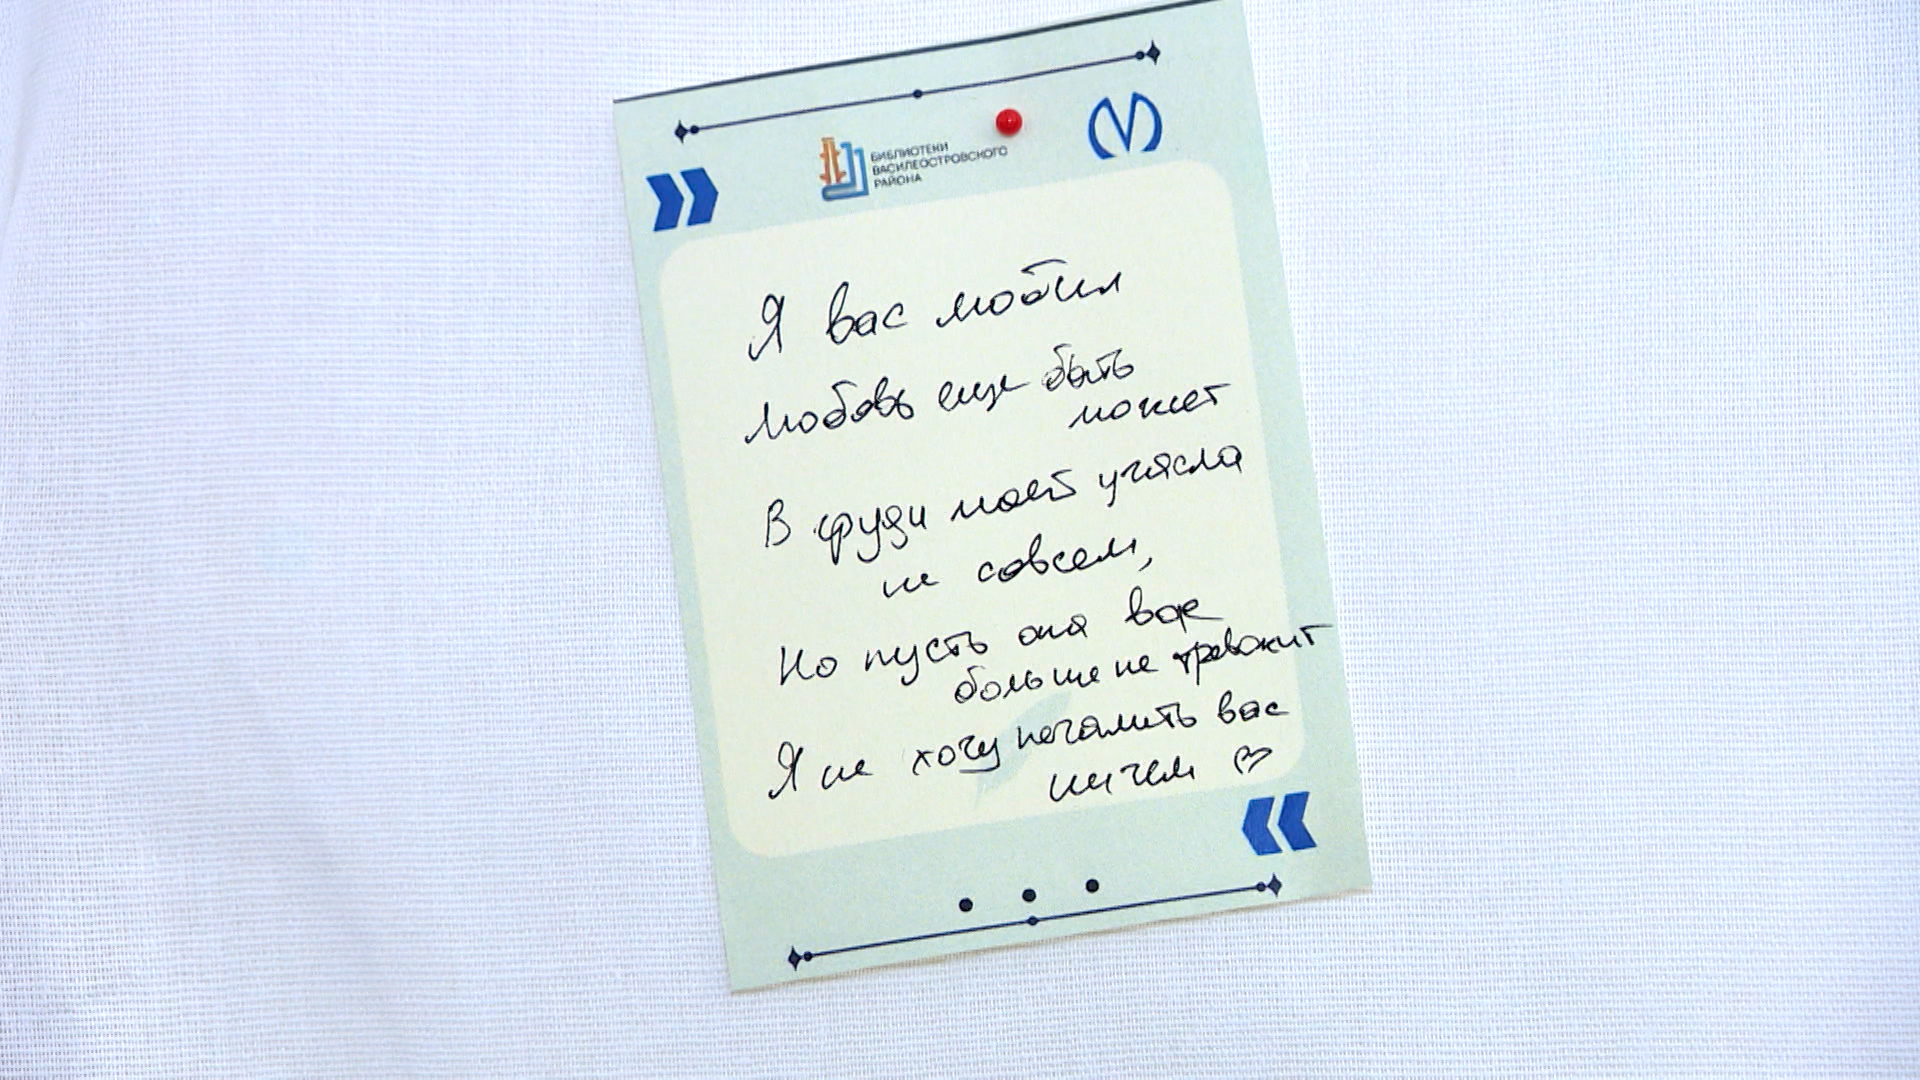 БИБЛИОТЕКИ
ВАСИЛЕОСТРОВСКОГО
РАЙОНА
Я вас любил
Любовь еще быть
может
В груди моей угасла
не совсем,
Но пусть она вас
больше не тревожит
Я не хочу печалить вас
ничем